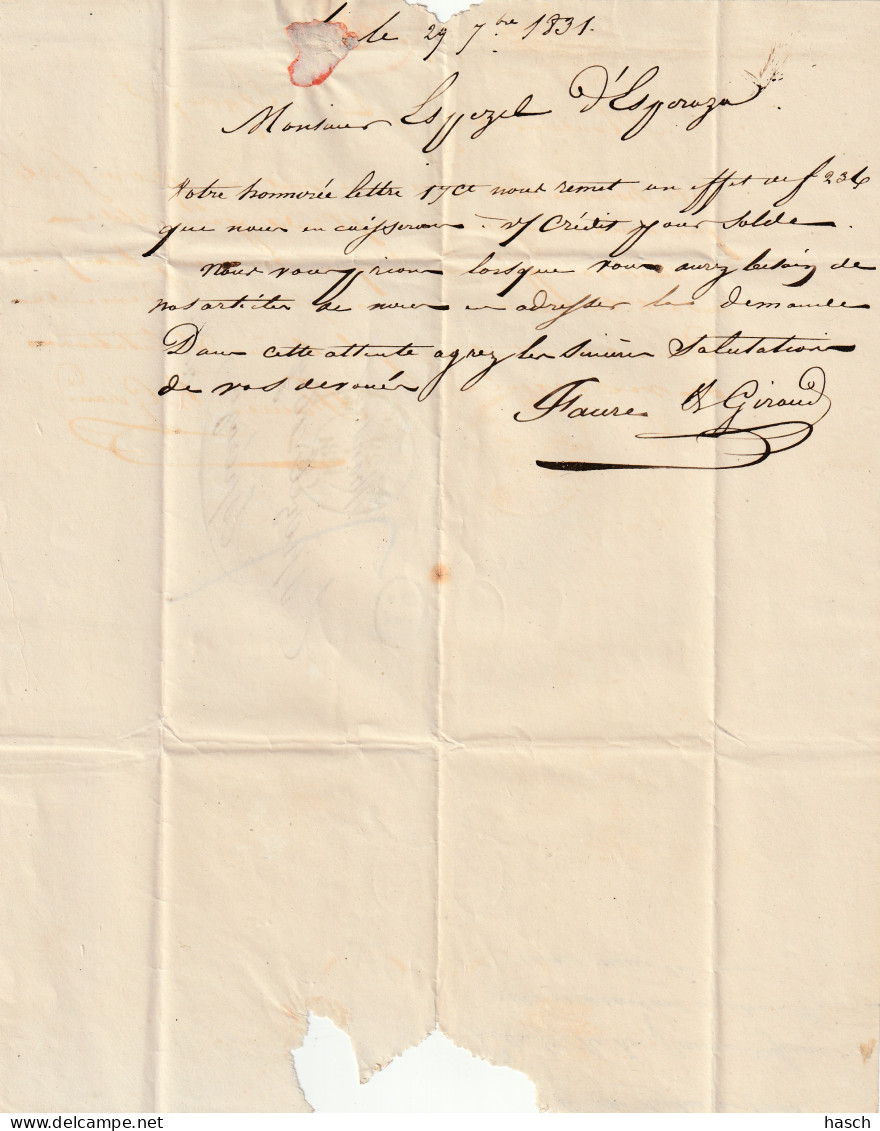 le 29 7bre 1831.
Monsieur Espezel d'Esperaza
Votre honnorée lettre 17 ct nous remet un effet de f 236
que nous encaisserons. v/ Crédit pour solde
Nous vous prions lorsque vous aurez besoin de
nos articles de nous en adresser la demande
Dans cette attente agrez les sinceres salutations
de vos devoués
Faure & Giraud
hasch